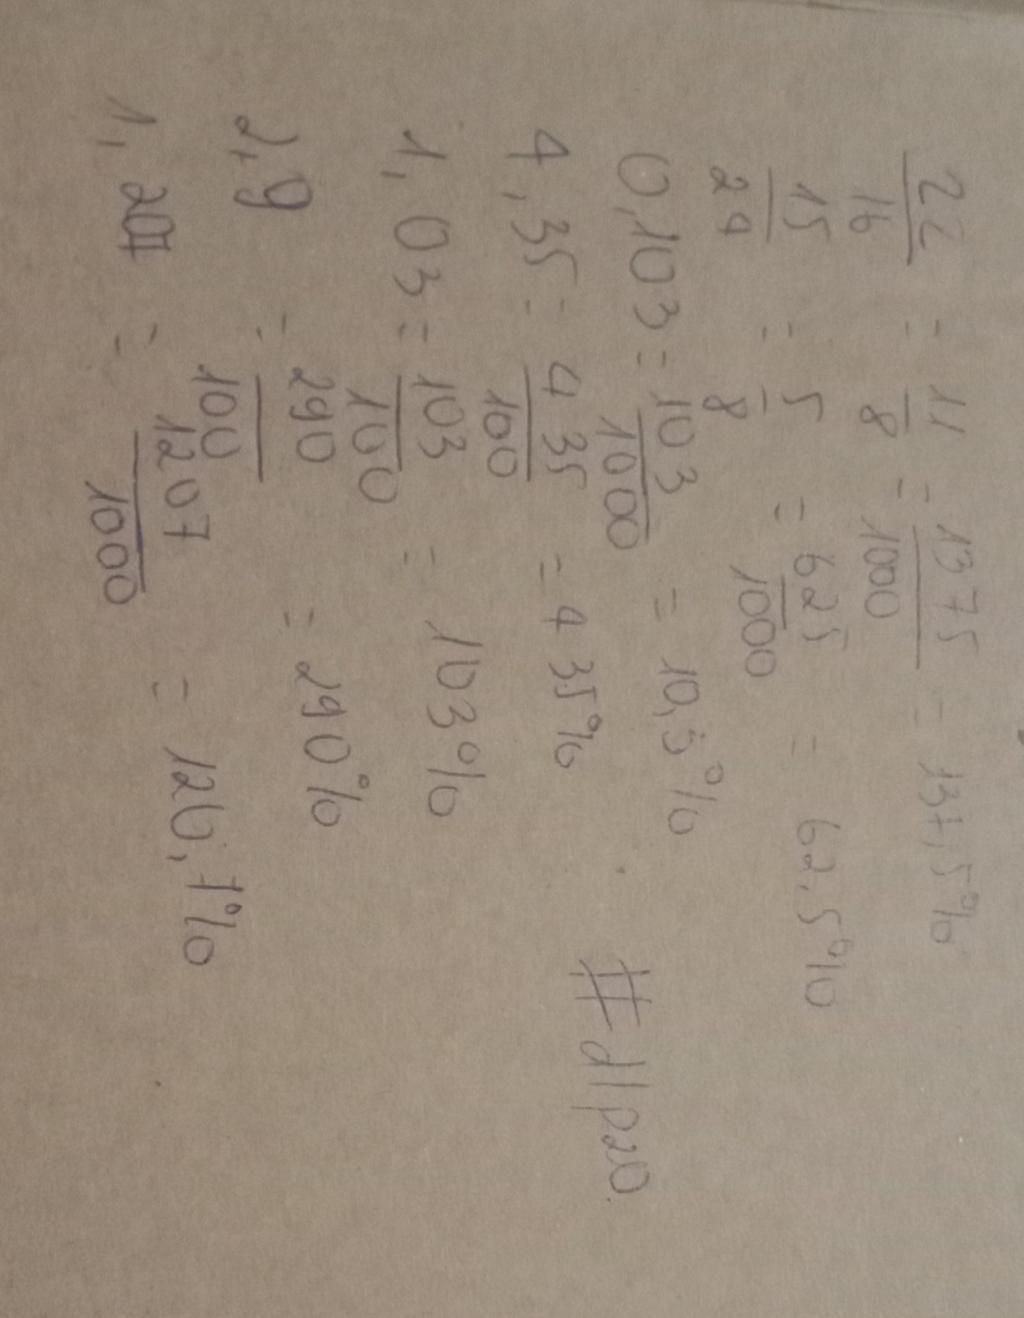 22/16 = 11/8 = 1375/1000 = 137,5%
15/24 = 5/8 = 625/1000 = 62,5%
0,103 = 103/1000 = 10,3%
4,35 = 435/100 = 435%
1,03 = 103/100 = 103%
2,9 = 290/100 = 290%
1,207 = 1207/1000 = 120,7%
#dlp20